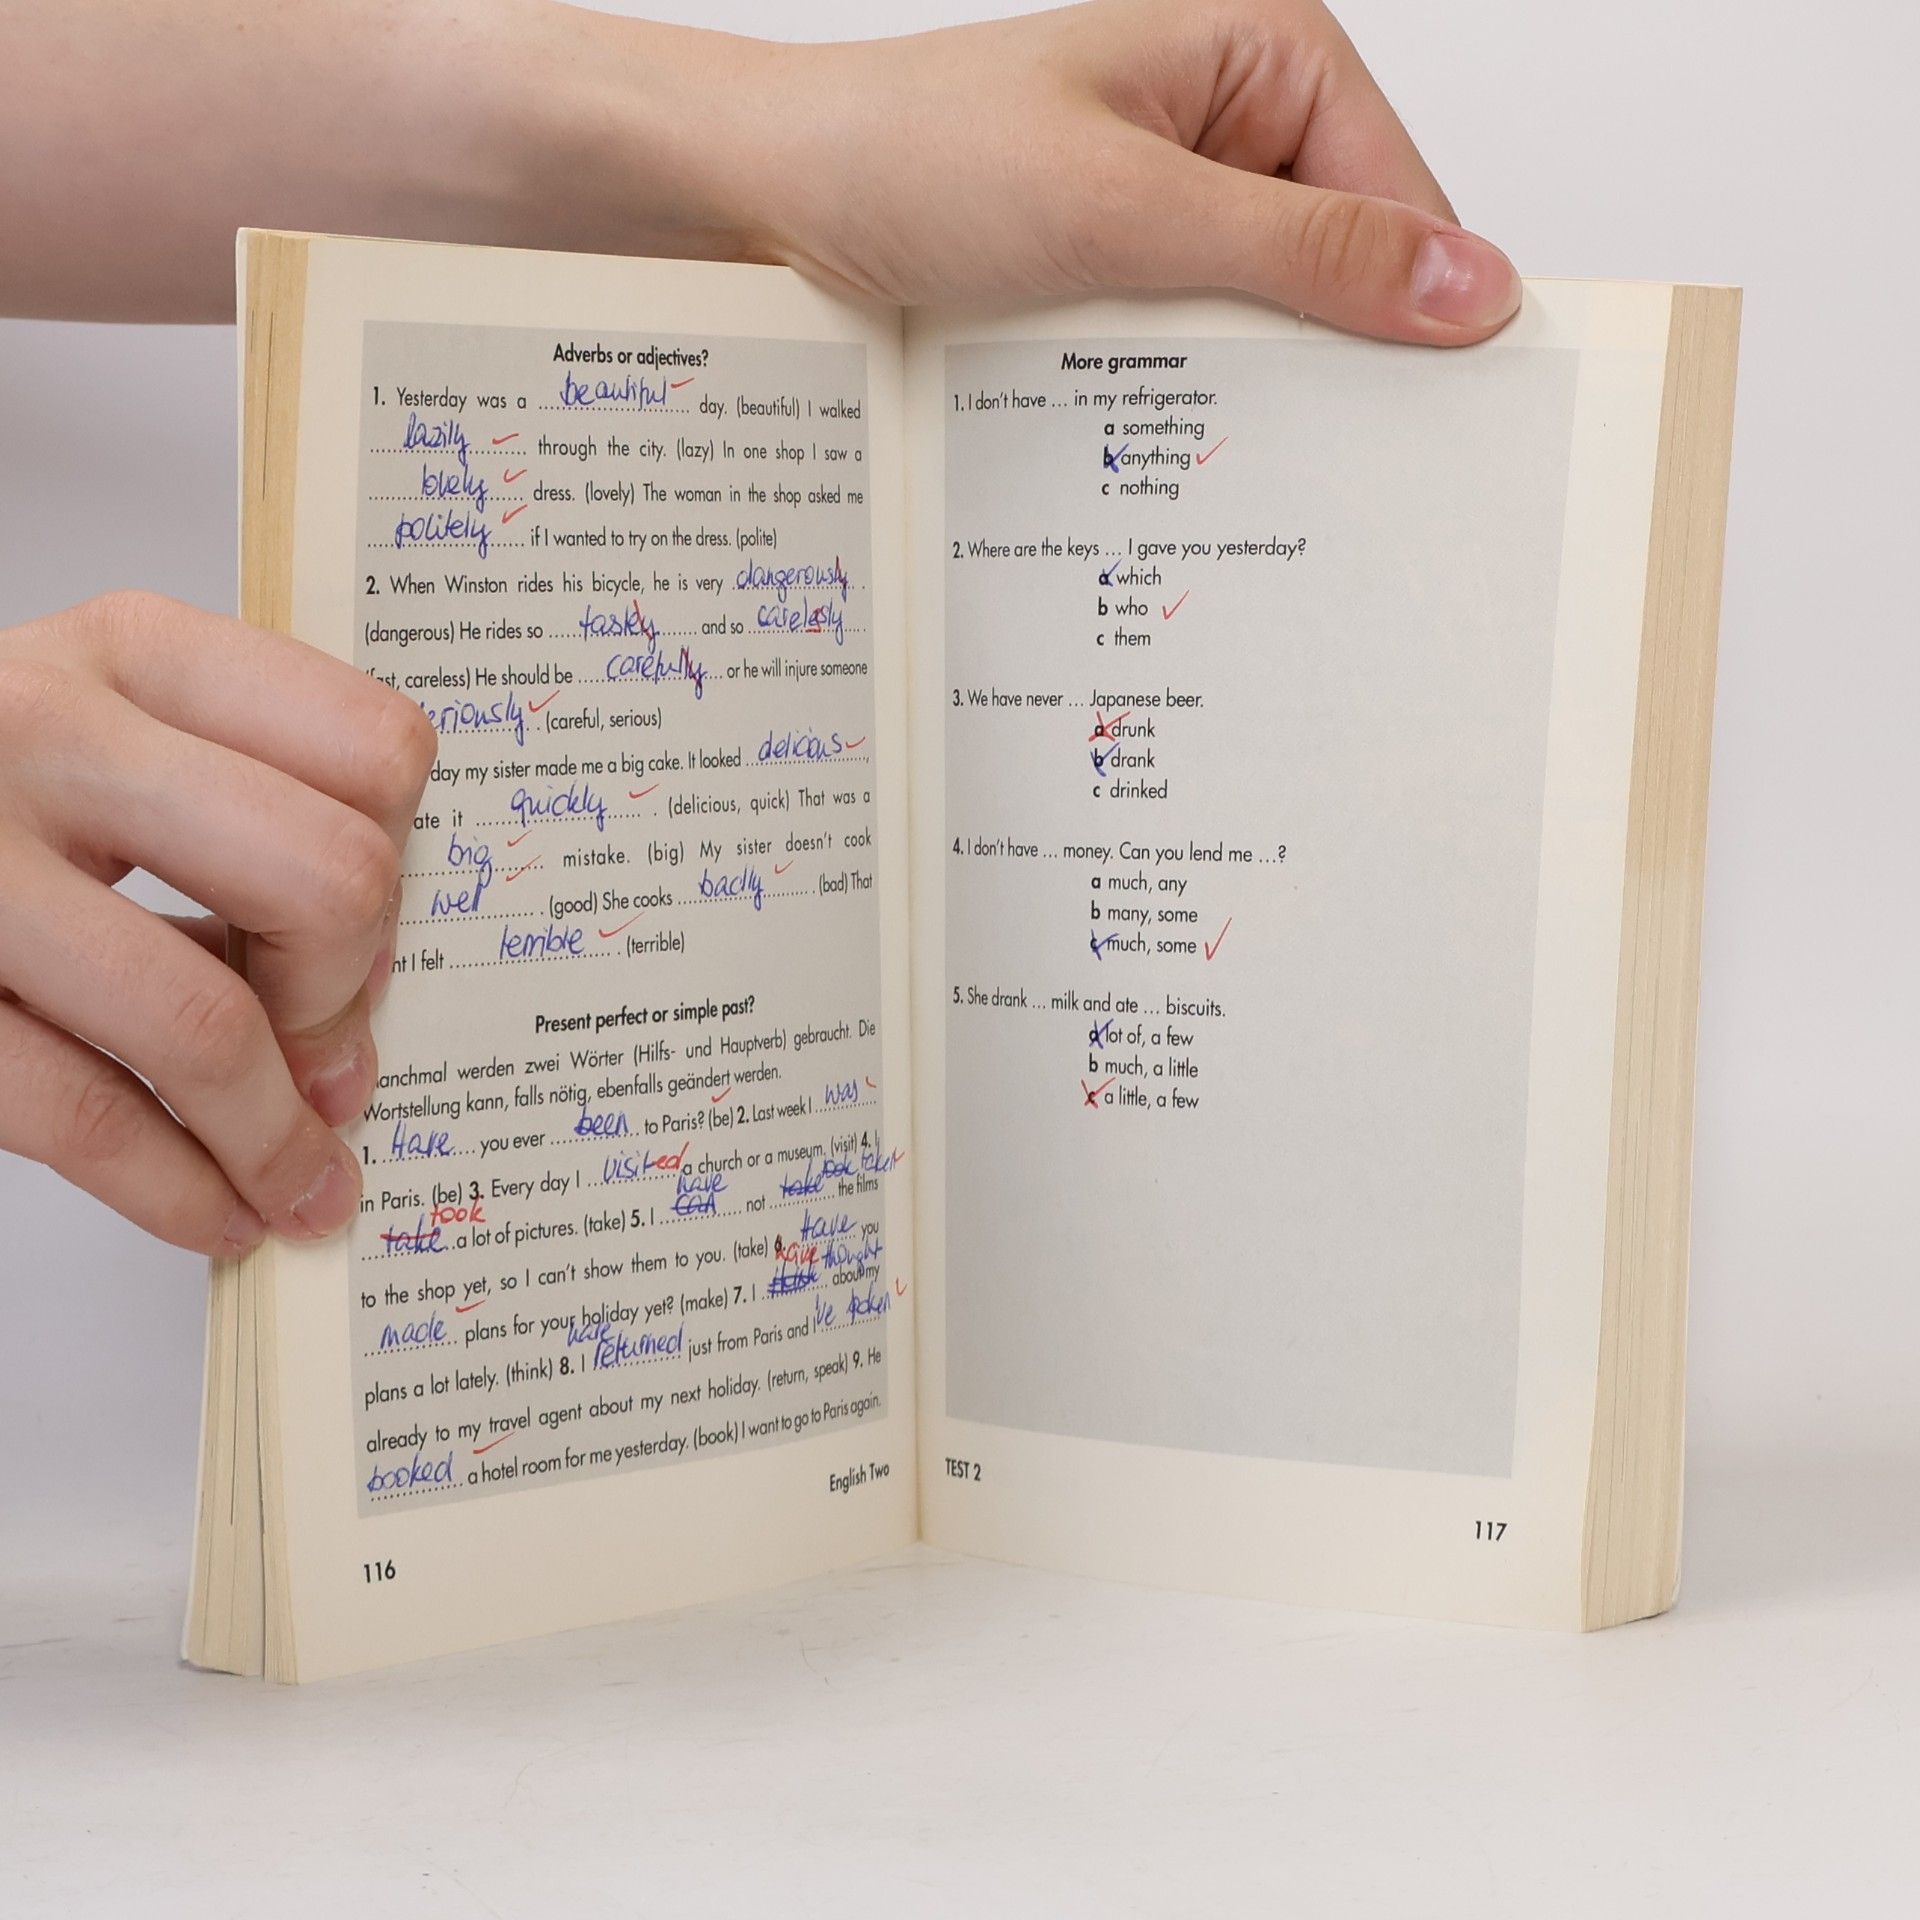 Adverbs or adjectives?
1. Yesterday was a beautiful day. (beautiful) I walked
lazily through the city. (lazy) In one shop I saw a
lovely dress. (lovely) The woman in the shop asked me
politely if I wanted to try on the dress. (polite)
2. When Winston rides his bicycle, he is very dangerously.
(dangerous) He rides so and so carelessly
careless) He should be carefully or he will injure someone
seriously. (careful, serious)
day my sister made me a big cake. It looked delicious,
ate it quickly. (delicious, quick) That was a
big mistake. (big) My sister doesn't cook
well. (good) She cooks badly. (bad) That
I felt terrible. (terrible)
Present perfect or simple past?
anchmal werden zwei Wörter (Hilfs- und Hauptverb) gebraucht. Die
Wortstellung kann, falls nötig, ebenfalls geändert werden.
1. Have you ever been to Paris? (be) 2. Last week I was
in Paris. (be) 3. Every day I visited a church or a museum. (visit) 4. I
have took taken
took
take a lot of pictures. (take) 5. I can not take the films
to the shop yet, so I can't show them to you. (take) 6. Have you
have thought
made plans for your holiday yet? (make) 7. I about my
have
plans a lot lately. (think) 8. I returned just from Paris and I 've spoken
already to my travel agent about my next holiday. (return, speak) 9. He
booked a hotel room for me yesterday. (book) I want to go to Paris again.
English Two
116
More grammar
1. I don't have ... in my refrigerator.
a something
b anything
c nothing
2. Where are the keys ... I gave you yesterday?
a which
b who
c them
3. We have never ... Japanese beer.
a drunk
b drank
c drinked
4. I don't have ... money. Can you lend me ...?
a much, any
b many, some
c much, some
5. She drank ... milk and ate ... biscuits.
a lot of, a few
b much, a little
c a little, a few
TEST 2
117